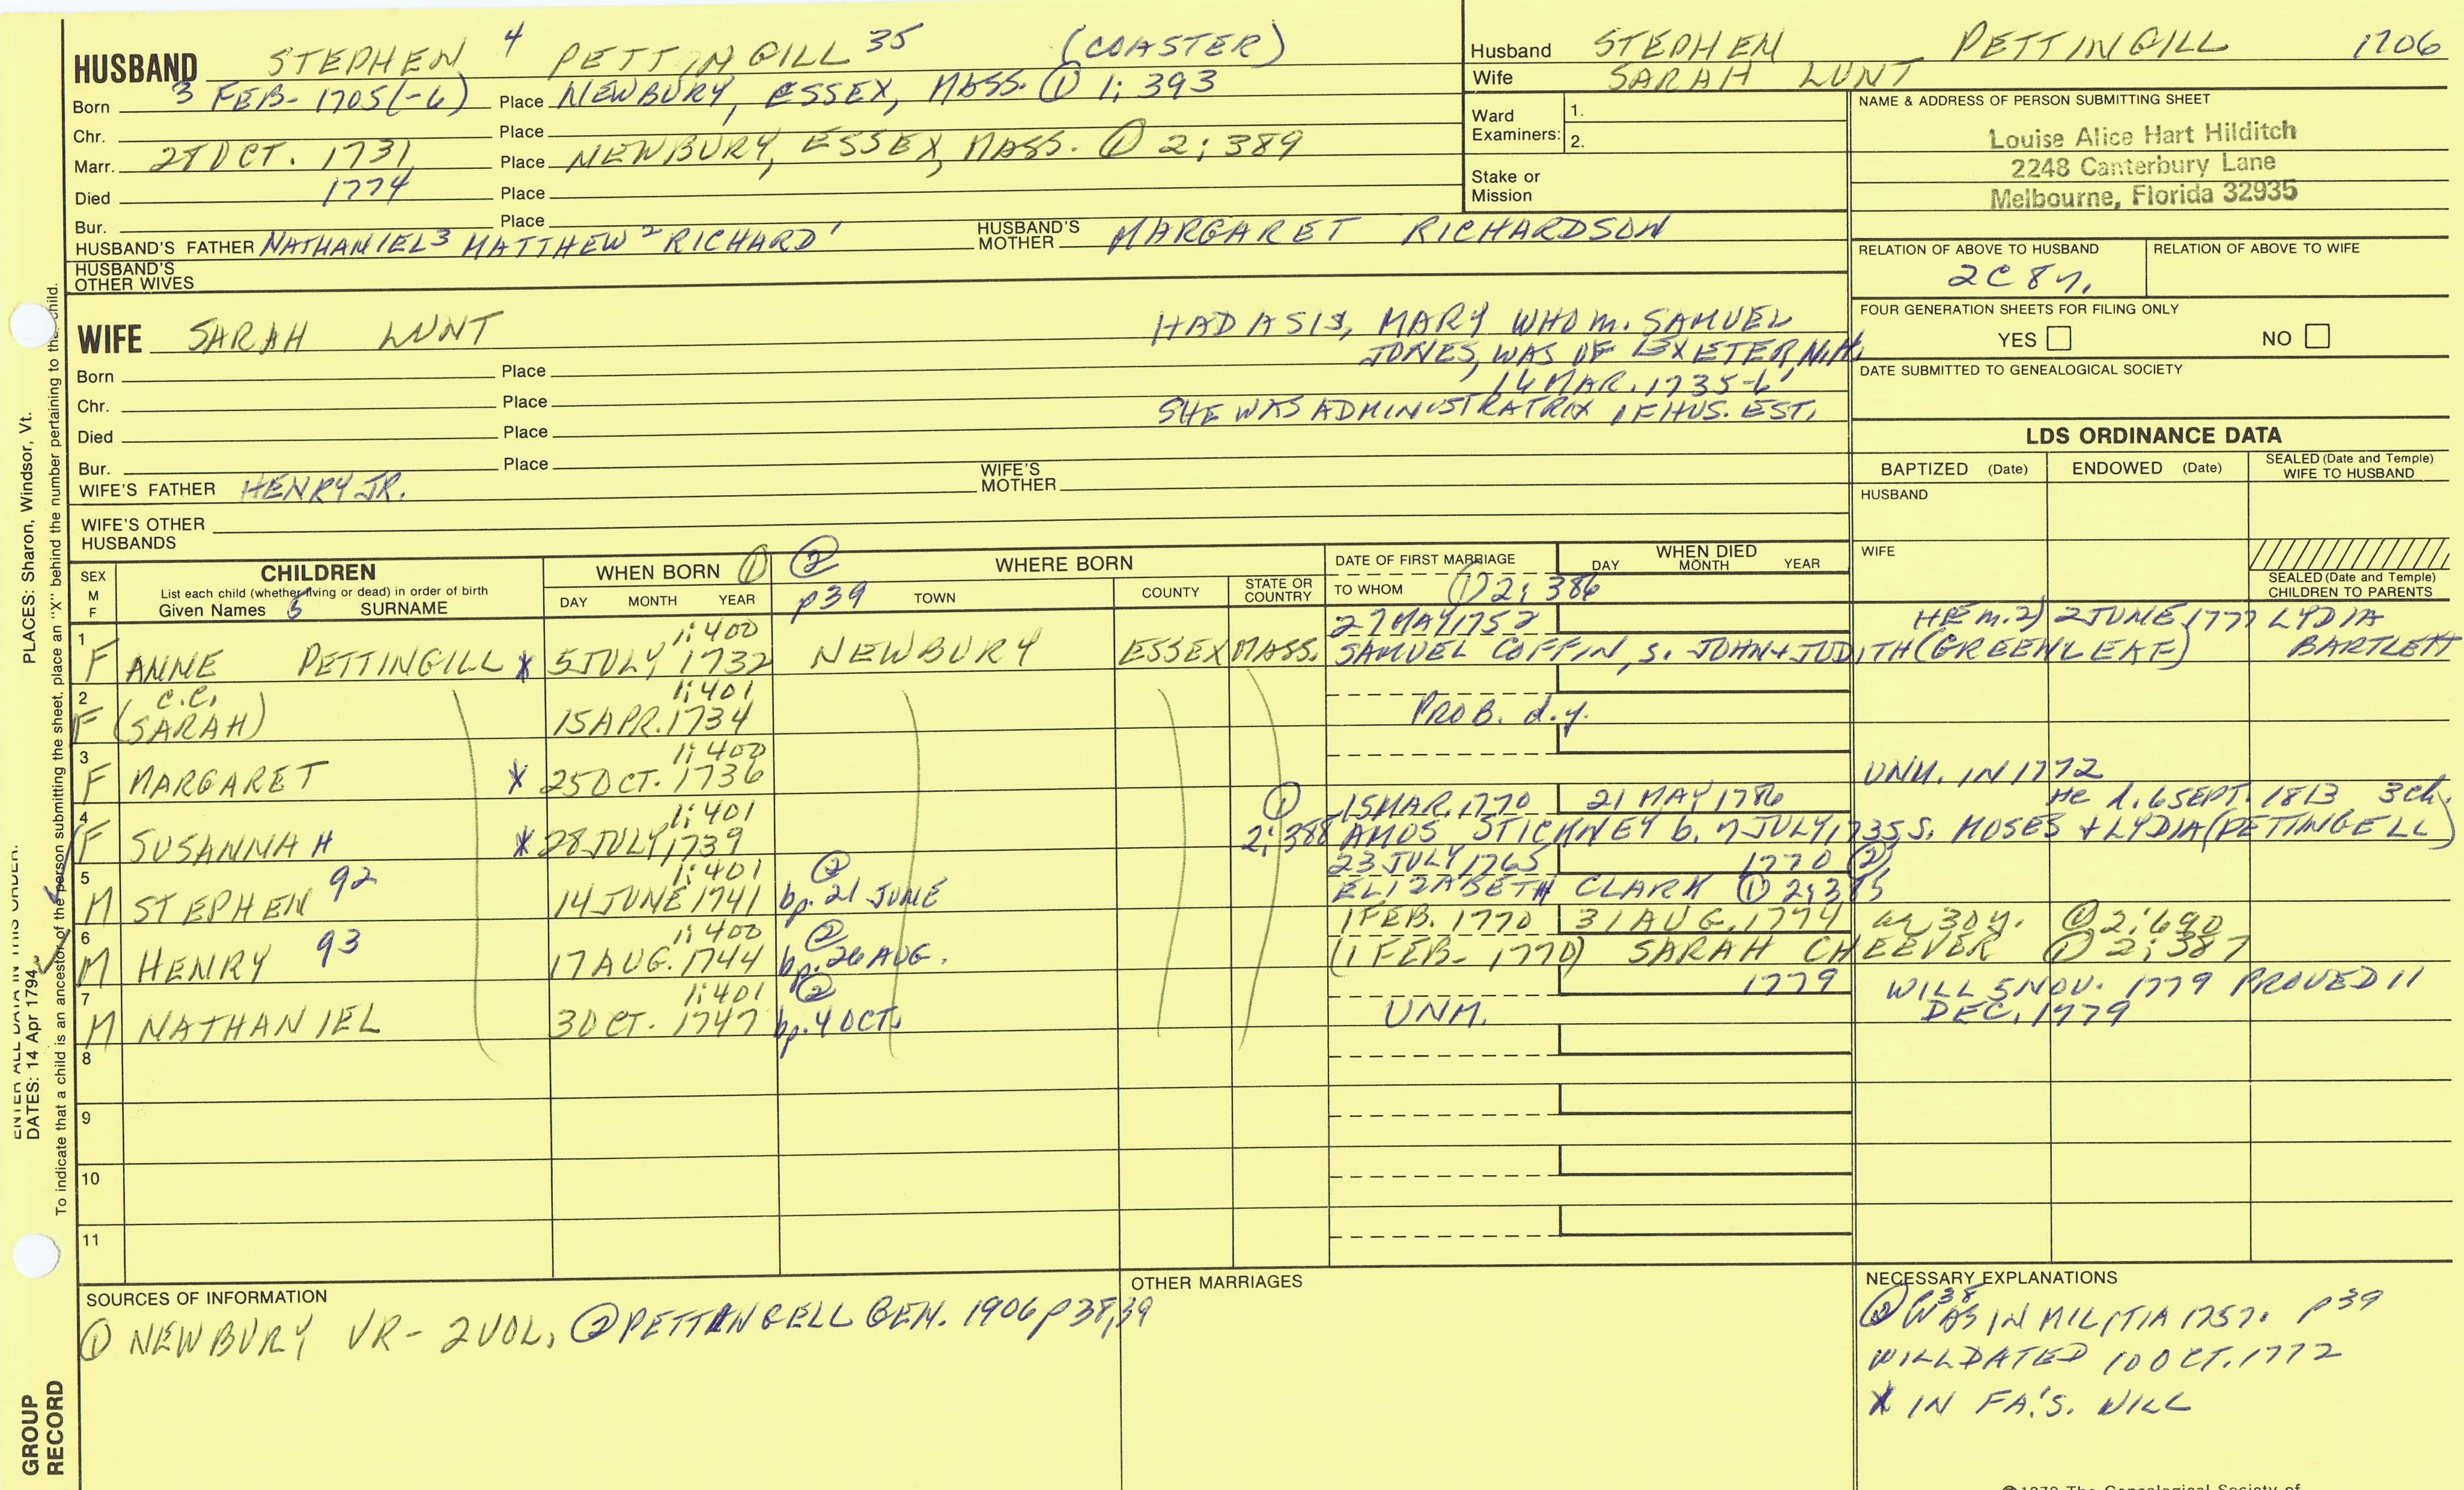 HUSBAND STEPHEN 4 PETTINGILL 35 (COASTER)
Born 3 FEB. 1705(-6) Place NEWBURY, ESSEX, MASS. ① 1; 393
Chr. Place
Marr. 28 OCT. 1731 Place NEWBURY, ESSEX, MASS. ① 2; 389
Died 1774 Place
Bur. Place
HUSBAND'S FATHER NATHANIEL 3 MATTHEW 2 RICHARD 1 HUSBAND'S MOTHER MARGARET RICHARDSON
HUSBAND'S
OTHER WIVES
Husband STEPHEN PETTINGILL 1706
Wife SARAH LUNT
Ward
Examiners: 1.
2.
Stake or
Mission
NAME & ADDRESS OF PERSON SUBMITTING SHEET
Louise Alice Hart Hilditch
2248 Canterbury Lane
Melbourne, Florida 32935
RELATION OF ABOVE TO HUSBAND RELATION OF ABOVE TO WIFE
2C 8
FOUR GENERATION SHEETS FOR FILING ONLY
YES NO
DATE SUBMITTED TO GENEALOGICAL SOCIETY
WIFE SARAH LUNT
HAD A SIS, MARY WHO m. SAMUEL
JONES, WAS OF EXETER, N.H.
14 MAR. 1735-6
SHE WAS ADMINISTRATRIX OF HUS. EST.
Born Place
Chr. Place
Died Place
Bur. Place
WIFE'S FATHER HENRY JR. WIFE'S MOTHER
WIFE'S OTHER
HUSBANDS
LDS ORDINANCE DATA
BAPTIZED (Date) ENDOWED (Date) SEALED (Date and Temple) WIFE TO HUSBAND
HUSBAND
WIFE
SEALED (Date and Temple)
CHILDREN TO PARENTS
SEX
M
F
CHILDREN
List each child (whether living or dead) in order of birth
Given Names SURNAME
WHEN BORN ①
DAY MONTH YEAR
② p39
WHERE BORN
TOWN COUNTY STATE OR COUNTRY
DATE OF FIRST MARRIAGE
TO WHOM ① 2; 386
WHEN DIED
DAY MONTH YEAR
1 1; 400 27 MAY 1752 HE m. 2) 2 JUNE 1777 LYDIA
F ANNE PETTINGILL X 5 JULY 1732 NEWBURY ESSEX MASS. SAMUEL COFFIN, S. JOHN + JUDITH (GREENLEAF) BARTLETT
2 C.C. 1; 401
F (SARAH) 15 APR. 1734 PROB. d.y.
3 1; 400
F MARGARET X 25 OCT. 1736 UNM. IN 1772
4 1; 401 ① 15 MAR. 1770 21 MAY 1786 He d. 6 SEPT. 1813 3 ch.
F SUSANNAH X 28 JULY 1739 2; 388 AMOS STICKNEY b. 7 JULY 1735 S. MOSES + LYDIA (PETTINGELL)
5 1; 401 ② 23 JULY 1765 1770 ②
M STEPHEN 92 14 JUNE 1741 bp. 21 JUNE ELIZABETH CLARK ① 2; 385
6 1; 400 ② 1 FEB. 1770 31 AUG. 1774 ae 30 y. ① 2; 690
M HENRY 93 17 AUG. 1744 bp. 26 AUG. (1 FEB. 1770) SARAH CHEEVER ① 2; 387
7 1; 401 ② 1779 WILL 5 NOV. 1779 PROVED 11
M NATHANIEL 3 OCT. 1747 bp. 4 OCT. UNM. DEC. 1779
8
9
10
11
SOURCES OF INFORMATION
① NEWBURY VR - 2 VOL, ② PETTINGELL GEN. 1906 p 38, 39
OTHER MARRIAGES
NECESSARY EXPLANATIONS
② p38 WAS IN MILITIA 1757. p 39
WILL DATED 10 OCT. 1772
X IN FA.'S. WILL
PLACES: Sharon, Windsor, Vt.
DATES: 14 Apr 1794
ENTER ALL DATA IN THIS ORDER:
To indicate that a child is an ancestor of the person submitting the sheet, place an "X" behind the number pertaining to that child.
GROUP
RECORD